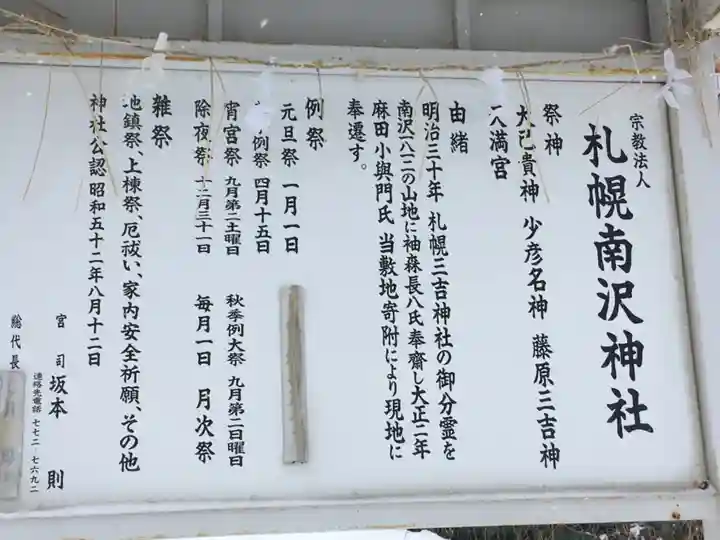 宗教法人
札幌南沢神社
祭神
大己貴神 少彦名神 藤原三吉神
八満宮
由緒
明治三十年 札幌三吉神社の御分霊を
南沢一八二の山地に袖森長八氏奉齋し大正二年
麻田小與門氏 当敷地寄附により現地に
奉遷す。
例祭
元旦祭 一月一日
例祭 四月十五日
宵宮祭 九月第二土曜日 秋季例大祭 九月第二日曜日
除夜祭 十二月三十一日 毎月一日 月次祭
雑祭
地鎮祭、上棟祭、厄祓い、家内安全祈願、その他
神社公認 昭和五十二年八月十二日
宮司 坂本 則
連絡先電話 七七二-七六九二
総代長